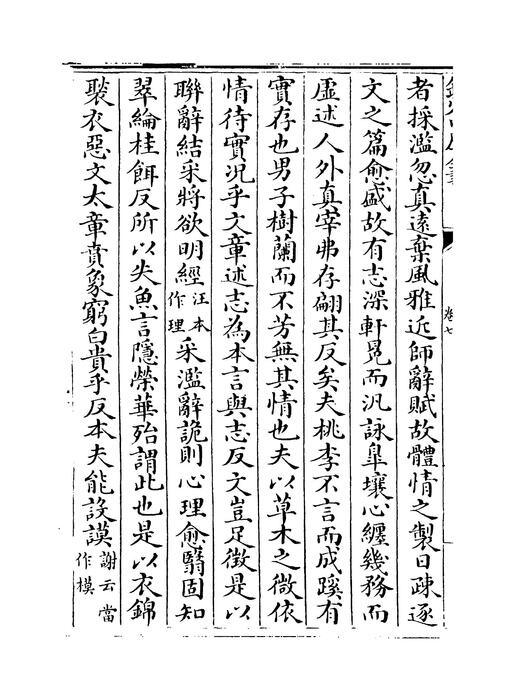 者採濫忽真遠棄風雅近師辭賦故體情之製日疎逐
文之篇愈盛故有志深軒冕而汎詠臯壤心纏幾務而
虛述人外真宰弗存翩其反矣夫桃李不言而成蹊有
實存也男子樹蘭而不芳無其情也夫以草木之微依
情待實況乎文章述志為本言與志反文豈足徵是以
聨辭結采將欲明經汪本作理采濫辭詭則心理愈翳固知
翠綸桂餌反所以失魚言隱榮華殆謂此也是以衣錦
褧衣惡文太章賁象窮白貴乎反本夫能設謨謝云當作模
卷七